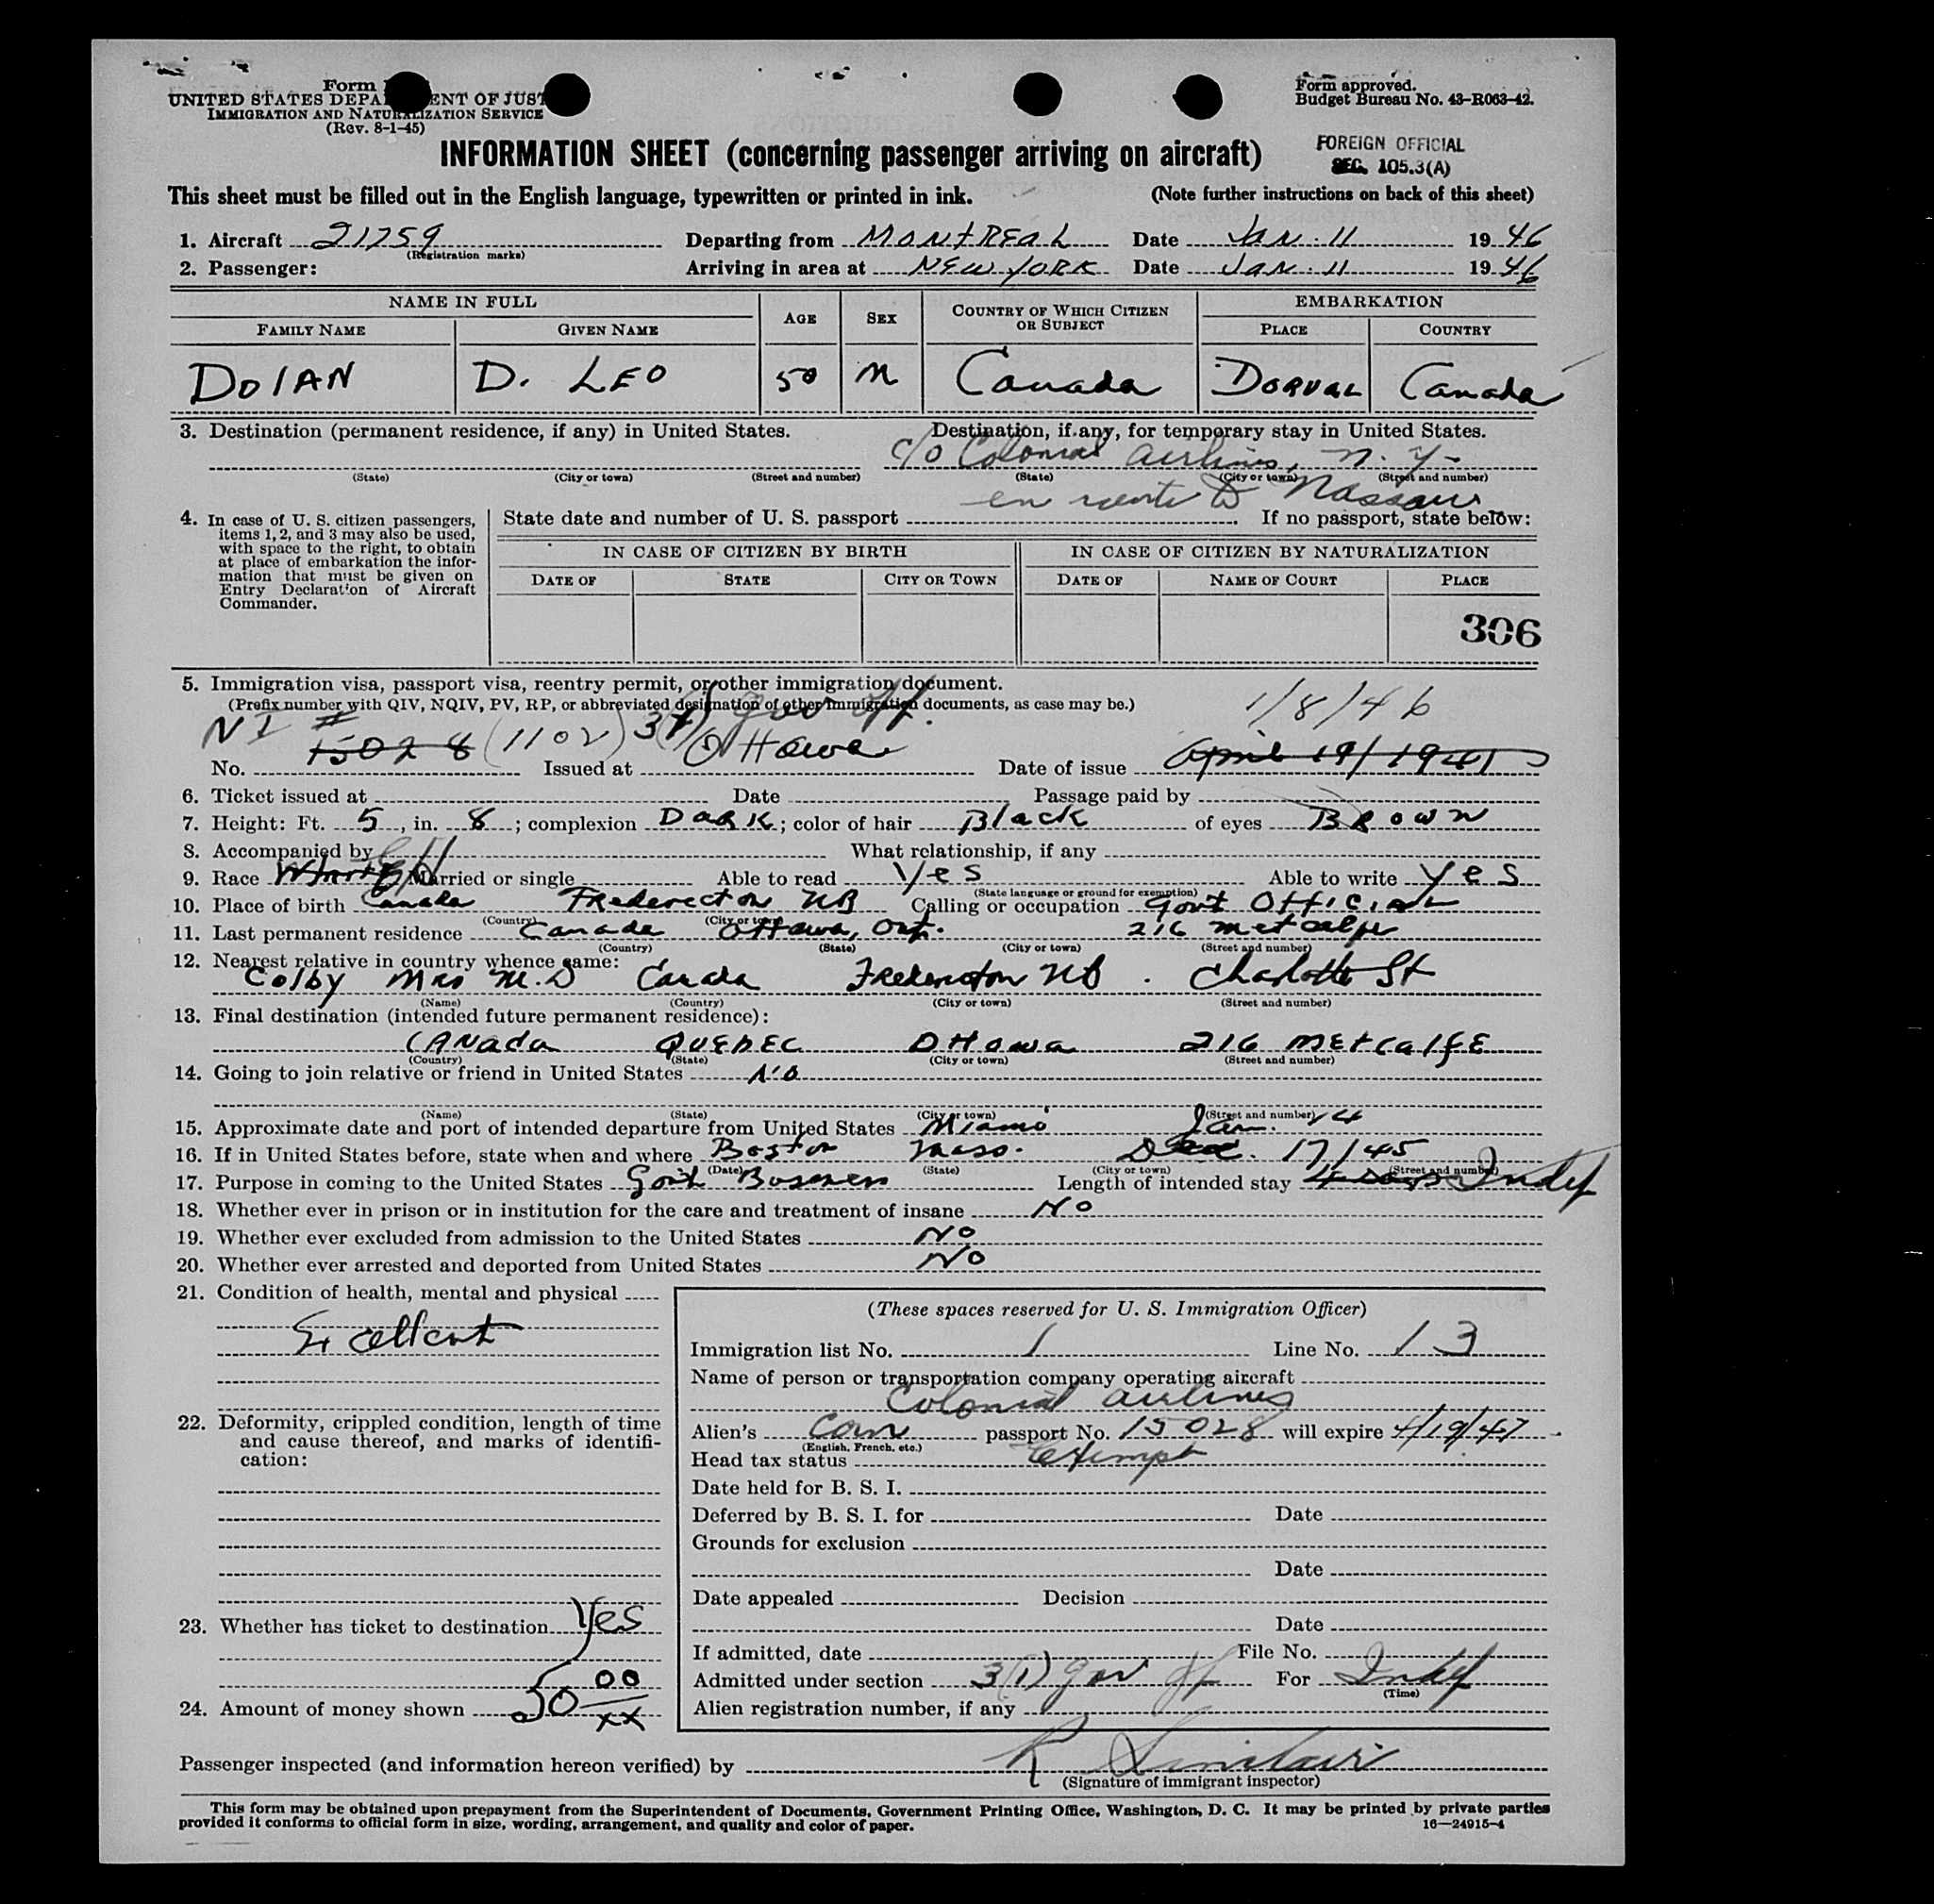 Form
UNITED STATES DEPA ENT OF JUST
IMMIGRATION AND NATURALIZATION SERVICE
(Rev. 8-1-45)
Form approved.
Budget Bureau No. 43-R063-42.
INFORMATION SHEET (concerning passenger arriving on aircraft)
FOREIGN OFFICIAL
SEC. 105.3(A)
This sheet must be filled out in the English language, typewritten or printed in ink. (Note further instructions on back of this sheet)
1. Aircraft 21759 Departing from MONTREAL Date JAN. 11 1946
(Registration marks)
2. Passenger: Arriving in area at NEW YORK Date JAN. 11 1946
NAME IN FULL AGE SEX COUNTRY OF WHICH CITIZEN OR SUBJECT EMBARKATION
FAMILY NAME GIVEN NAME PLACE COUNTRY
DOLAN D. LEO 50 M Canada DORVAL Canada
3. Destination (permanent residence, if any) in United States. Destination, if any, for temporary stay in United States.
c/o Colonial Airlines, N.Y.
(State) (City or town) (Street and number) (State) (City or town) (Street and number)
en route to Nassau
4. In case of U. S. citizen passengers, items 1, 2, and 3 may also be used, with space to the right, to obtain at place of embarkation the information that must be given on Entry Declaration of Aircraft Commander.
State date and number of U. S. passport . If no passport, state below:
IN CASE OF CITIZEN BY BIRTH IN CASE OF CITIZEN BY NATURALIZATION
DATE OF STATE CITY OR TOWN DATE OF NAME OF COURT PLACE
306
5. Immigration visa, passport visa, reentry permit, or other immigration document.
(Prefix number with QIV, NQIV, PV, RP, or abbreviated designation of other immigration documents, as case may be.)
NI # 3(1) gov off. 1/8/46
No. 15028 (1102) Issued at Ottawa Date of issue April 19/1941
6. Ticket issued at Date Passage paid by
7. Height: Ft. 5, in. 8; complexion DARK; color of hair Black of eyes BROWN
8. Accompanied by What relationship, if any
9. Race Married or single Able to read Yes Able to write Yes
(State language or ground for exemption)
10. Place of birth Canada Fredericton NB Calling or occupation Govt Official
(Country) (City or town)
11. Last permanent residence Canada Ottawa, Ont. 216 Metcalfe
(Country) (State) (City or town) (Street and number)
12. Nearest relative in country whence came:
Colby Mrs M.D Canada Fredericton NB. Charlotte St
(Name) (Country) (City or town) (Street and number)
13. Final destination (intended future permanent residence):
CANADA QUEBEC Ottawa 216 METCALFE
(Country) (State) (City or town) (Street and number)
14. Going to join relative or friend in United States NO
(Name) (State) (City or town) (Street and number)
15. Approximate date and port of intended departure from United States Miami Jan. 14
16. If in United States before, state when and where Boston Mass. Dec. 17/45
(Date) (State) (City or town) (Street and number)
17. Purpose in coming to the United States Govt Business Length of intended stay 4 Days Indef
18. Whether ever in prison or in institution for the care and treatment of insane No
19. Whether ever excluded from admission to the United States No
20. Whether ever arrested and deported from United States No
21. Condition of health, mental and physical
Excellent
22. Deformity, crippled condition, length of time and cause thereof, and marks of identification:
23. Whether has ticket to destination Yes
24. Amount of money shown 50 00/xx
(These spaces reserved for U. S. Immigration Officer)
Immigration list No. 1 Line No. 13
Name of person or transportation company operating aircraft
Colonial Airlines
Alien's Can passport No. 15028 will expire 4/19/47
(English, French, etc.)
Head tax status Exempt
Date held for B. S. I.
Deferred by B. S. I. for Date
Grounds for exclusion
Date
Date appealed Decision
Date
If admitted, date File No.
Admitted under section 3(1) gov off For Indef
(Time)
Alien registration number, if any
Passenger inspected (and information hereon verified) by R Sinclair
(Signature of immigrant inspector)
This form may be obtained upon prepayment from the Superintendent of Documents, Government Printing Office, Washington, D. C. It may be printed by private parties
provided it conforms to official form in size, wording, arrangement, and quality and color of paper. 16—24915-4